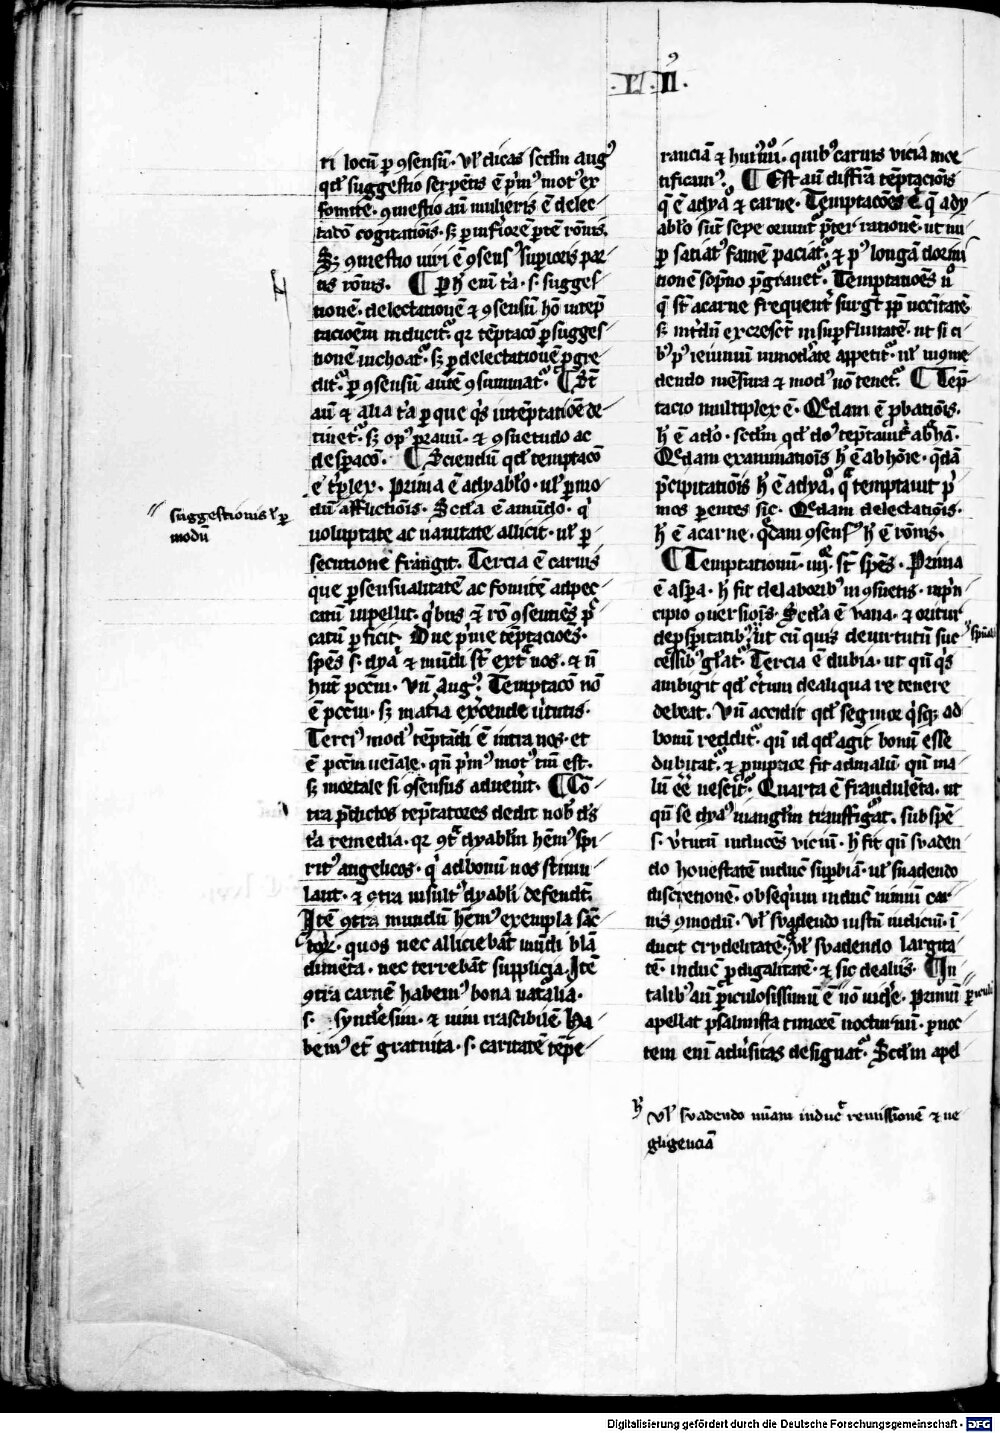 .L'.II.
ri locū ꝑ ꝯsensū. vl' dicas scd'm aug9
qd' suggestio serpētis ē p'm9 mot9 ex
fomite. ꝯmestio aū mulieris ē delec
tatō cogitatiōis. sꝫ ꝑ inf'iorē ꝑtē rōnis.
Sꝫ ꝯmestio viri ē ꝯsens9 suꝑioris par
tis rōnis. ¶ ꝑ h' eni t'a. s. sugges
tionē. delectationē ⁊ ꝯsensū hō in tēp
tacioēm inducit᷑. qr tēptacō ꝑ sugges
tionē inchoat᷑. sꝫ ꝑ delectationē ꝓgre
dit᷑. ꝑ ꝯsensū autē ꝯsummat᷑. ¶ St̄
aū ⁊ alia t'a ꝑ que q's in tēptatiōe de
tinet᷑. sꝫ op9 prauū. ⁊ ꝯsuetudo ac
desꝑacō. ¶ Sciendū qd' temptacō
ē t'plex. Prima ē a dyabl'o. vl' ꝑ mo
dū afflictiōis. Scd'a ē a mūdo. q'
voluptate ac uanitate allicit. vl' ꝑ
secutione frāngit. Tercia ē carnis
que ꝑ sensualitatē ac fomitē ad pec
catū inpellit. q'bus ⁊ rō ꝯsenciēs p̄
catū ꝑficit. Due p'me tēptacioēs.
spēs s. dya' ⁊ mūdi st̄ ext̄ nos. ⁊ n̄
hn̄t pccm̄. Vn̄ aug9. Temptacō nō
ē pccm̄. sꝫ mat'ia ex'cende u'tutis.
Terci9 mod9 tēptādi ē intra nos. et
ē pccm̄ ueīale. qn̄ p'm9 mot9 tm̄ est.
sꝫ mortale si ꝯsensus aduen'it. ¶ Cō
tra p̄dictos tēptatores dedit nob' d's
t'a remedia. qr ꝯt̄ dyabl'm hēm9 spi
rit9 angelicos. q' ad bonū nos stimu
lant. ⁊ ꝯtra insult9 dyabl'i defendūt.
Itē ꝯtra mundū hēm9 exempla sāc
toꝝ. quos nec alliciebāt mūdi blā
dimēta. nec terrebāt supplicia. Itē
ꝯtra carnē habem9 bona nat'alia.
s. syndesim. ⁊ uim irascibilē. Ha
bem9 et̄ gratuita. s. caritatē tēpe
suggestionis l' ꝑ
modū
ranciā ⁊ hui9mō. quib9 carnis vicia mor
tificam9. ¶ Est aū diffr̄a tēptaciōis
q̄ ē a dya'o ⁊ carne. Temptacōes q̄ a dy
abl'o sūt sepe oriunt᷑ p̄ter rationē. ut nu
ꝑ saciat9 famē paciat᷑. ⁊ p9 longā dormi
tionē sōpno p̄grauet᷑. Temptatioēs u̅
q̄ st̄ a carne frequent' surgūt ꝓp̄ ncc̄itatē
sꝫ int'dū excresc̄t in suꝑfluitatē. ut si ci
b9 p9 ieiuniū inmod'ate appetit᷑. ul' in ꝯme
dendo mēsura ⁊ mod9 nō tenet᷑. ¶ Tēp
tacio multiplex ē. Qedam ē ꝓbatiōis.
h' ē a d'o. scd'm qd' do9 tēptauit abhā.
Qedam examinatiōis h' ē ab hōīe. q̄dā
p̄cipitatiōis h' ē a dya'. q̄ temptauit p'
mos parentes sic. Qedam delectatiōis.
h' ē a carne. q̄dam ꝯsens9 h' ē rōnis.
¶ Temptationum. iiij. st̄ spēs. Prima
ē aspa. h' fit de laborib9 inꝯsuetis. in p'n
cipio ꝯuersiōis. Scd'a ē vana. ⁊ oritur
de ꝓspitatib9. ut cū quis de uirtutū suc
cessib9 gl'at᷑. Tercia ē dubia. ut qn̄ q's
ambigit qd' c'tum de aliqua re tenere
debeat. Vn̄ accidit qd' segnior q'sqꝫ ad
bonū reddit᷑. qn̄ id qd' agit bonū esse
dubitat᷑. ⁊ ꝓmptior fit ad malū. qn̄ ma
lū ēē nescit᷑. Quarta ē fraudulēta. ut
qn̄ se dya9 in angl'm trāsfigat. sub spē
s. v'tutū inducēs viciū. h' fit qn̄ svaden
do honestatē induc̄ suꝑbiā. ul' suadendo
discretionē. obsequiū induc̄ nimiū car
nis ꝯmodū. Vl' svadendo iustū iudiciū. ī
ducit crvdelitatē. vl' svadendo largita
tē. induc̄ ꝓdigalitatē. ⁊ sic de aliis. ¶ In
talib9 aū ꝑiculosissimū ē nō uid'e. Primū
apellat psalmista timorē nocturnū. ꝑ noc
tem eni adu'sitas designat᷑. Scd'm apel
vl' svadendo ... induc̄ remissionē ⁊ ne
gligenciā